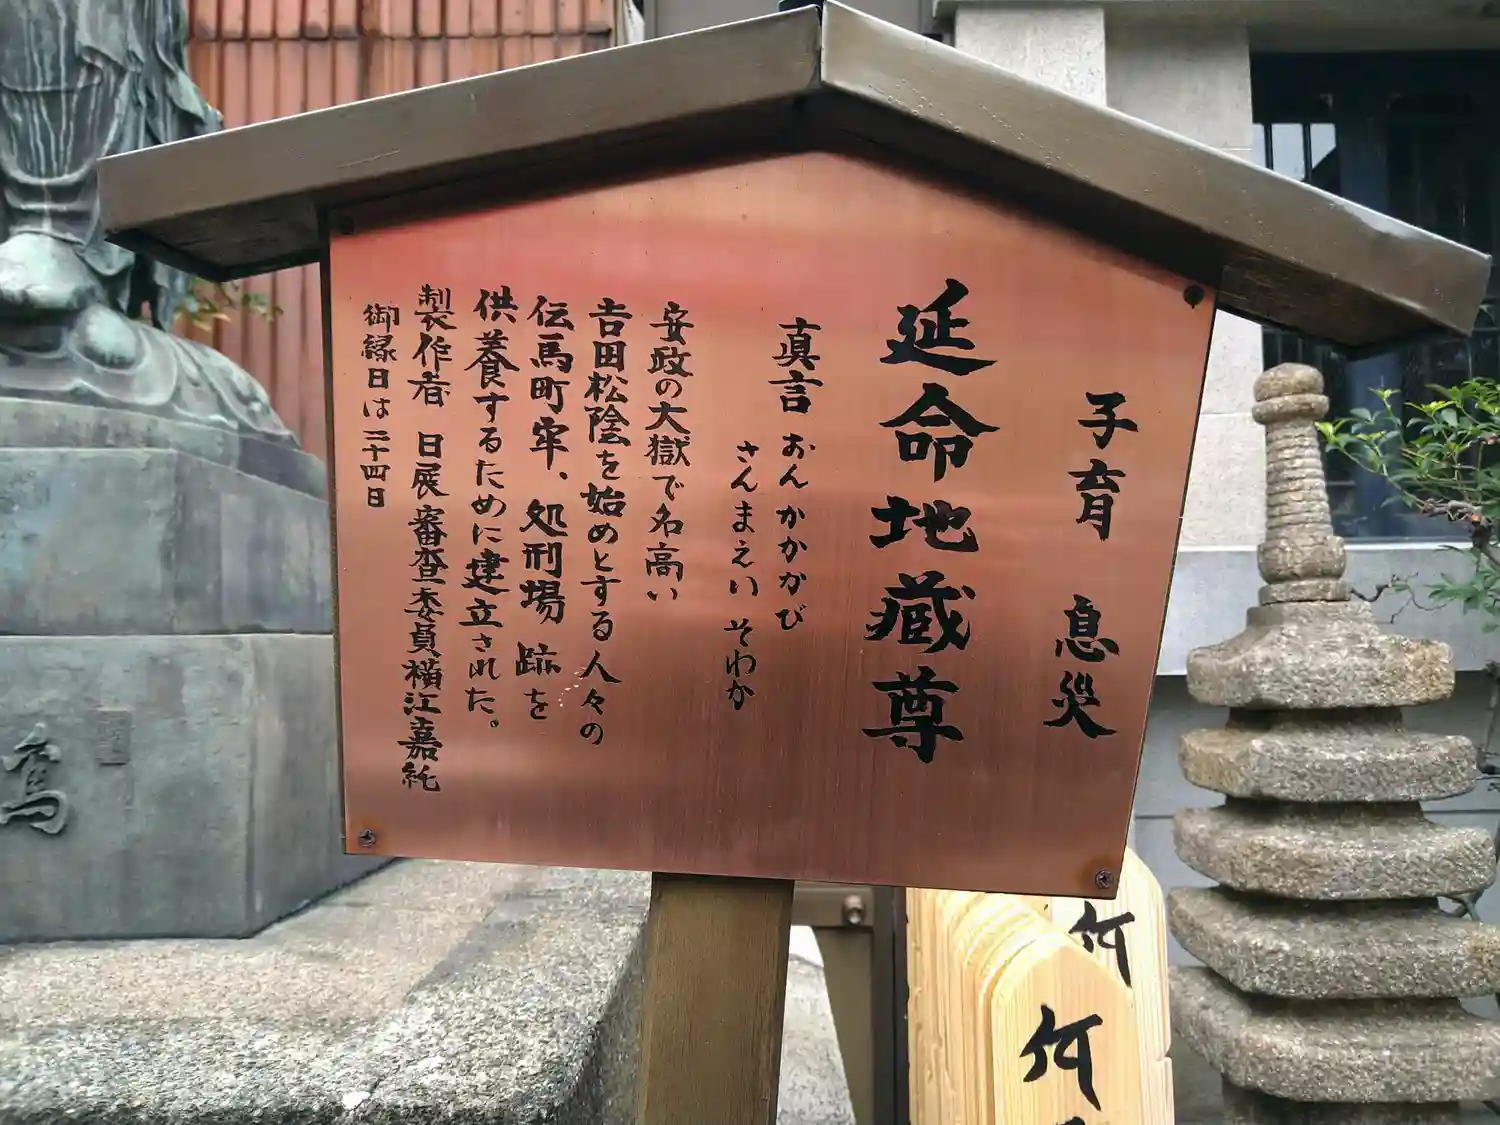 子育 息災
延命地蔵尊
真言 おん かかかび
さんまえい そわか
安政の大獄で名高い
吉田松陰を始めとする人々の
伝馬町牢、処刑場跡を
供養するために建立された。
製作者 日展審査委員横江嘉純
御縁日は二十四日
何
何